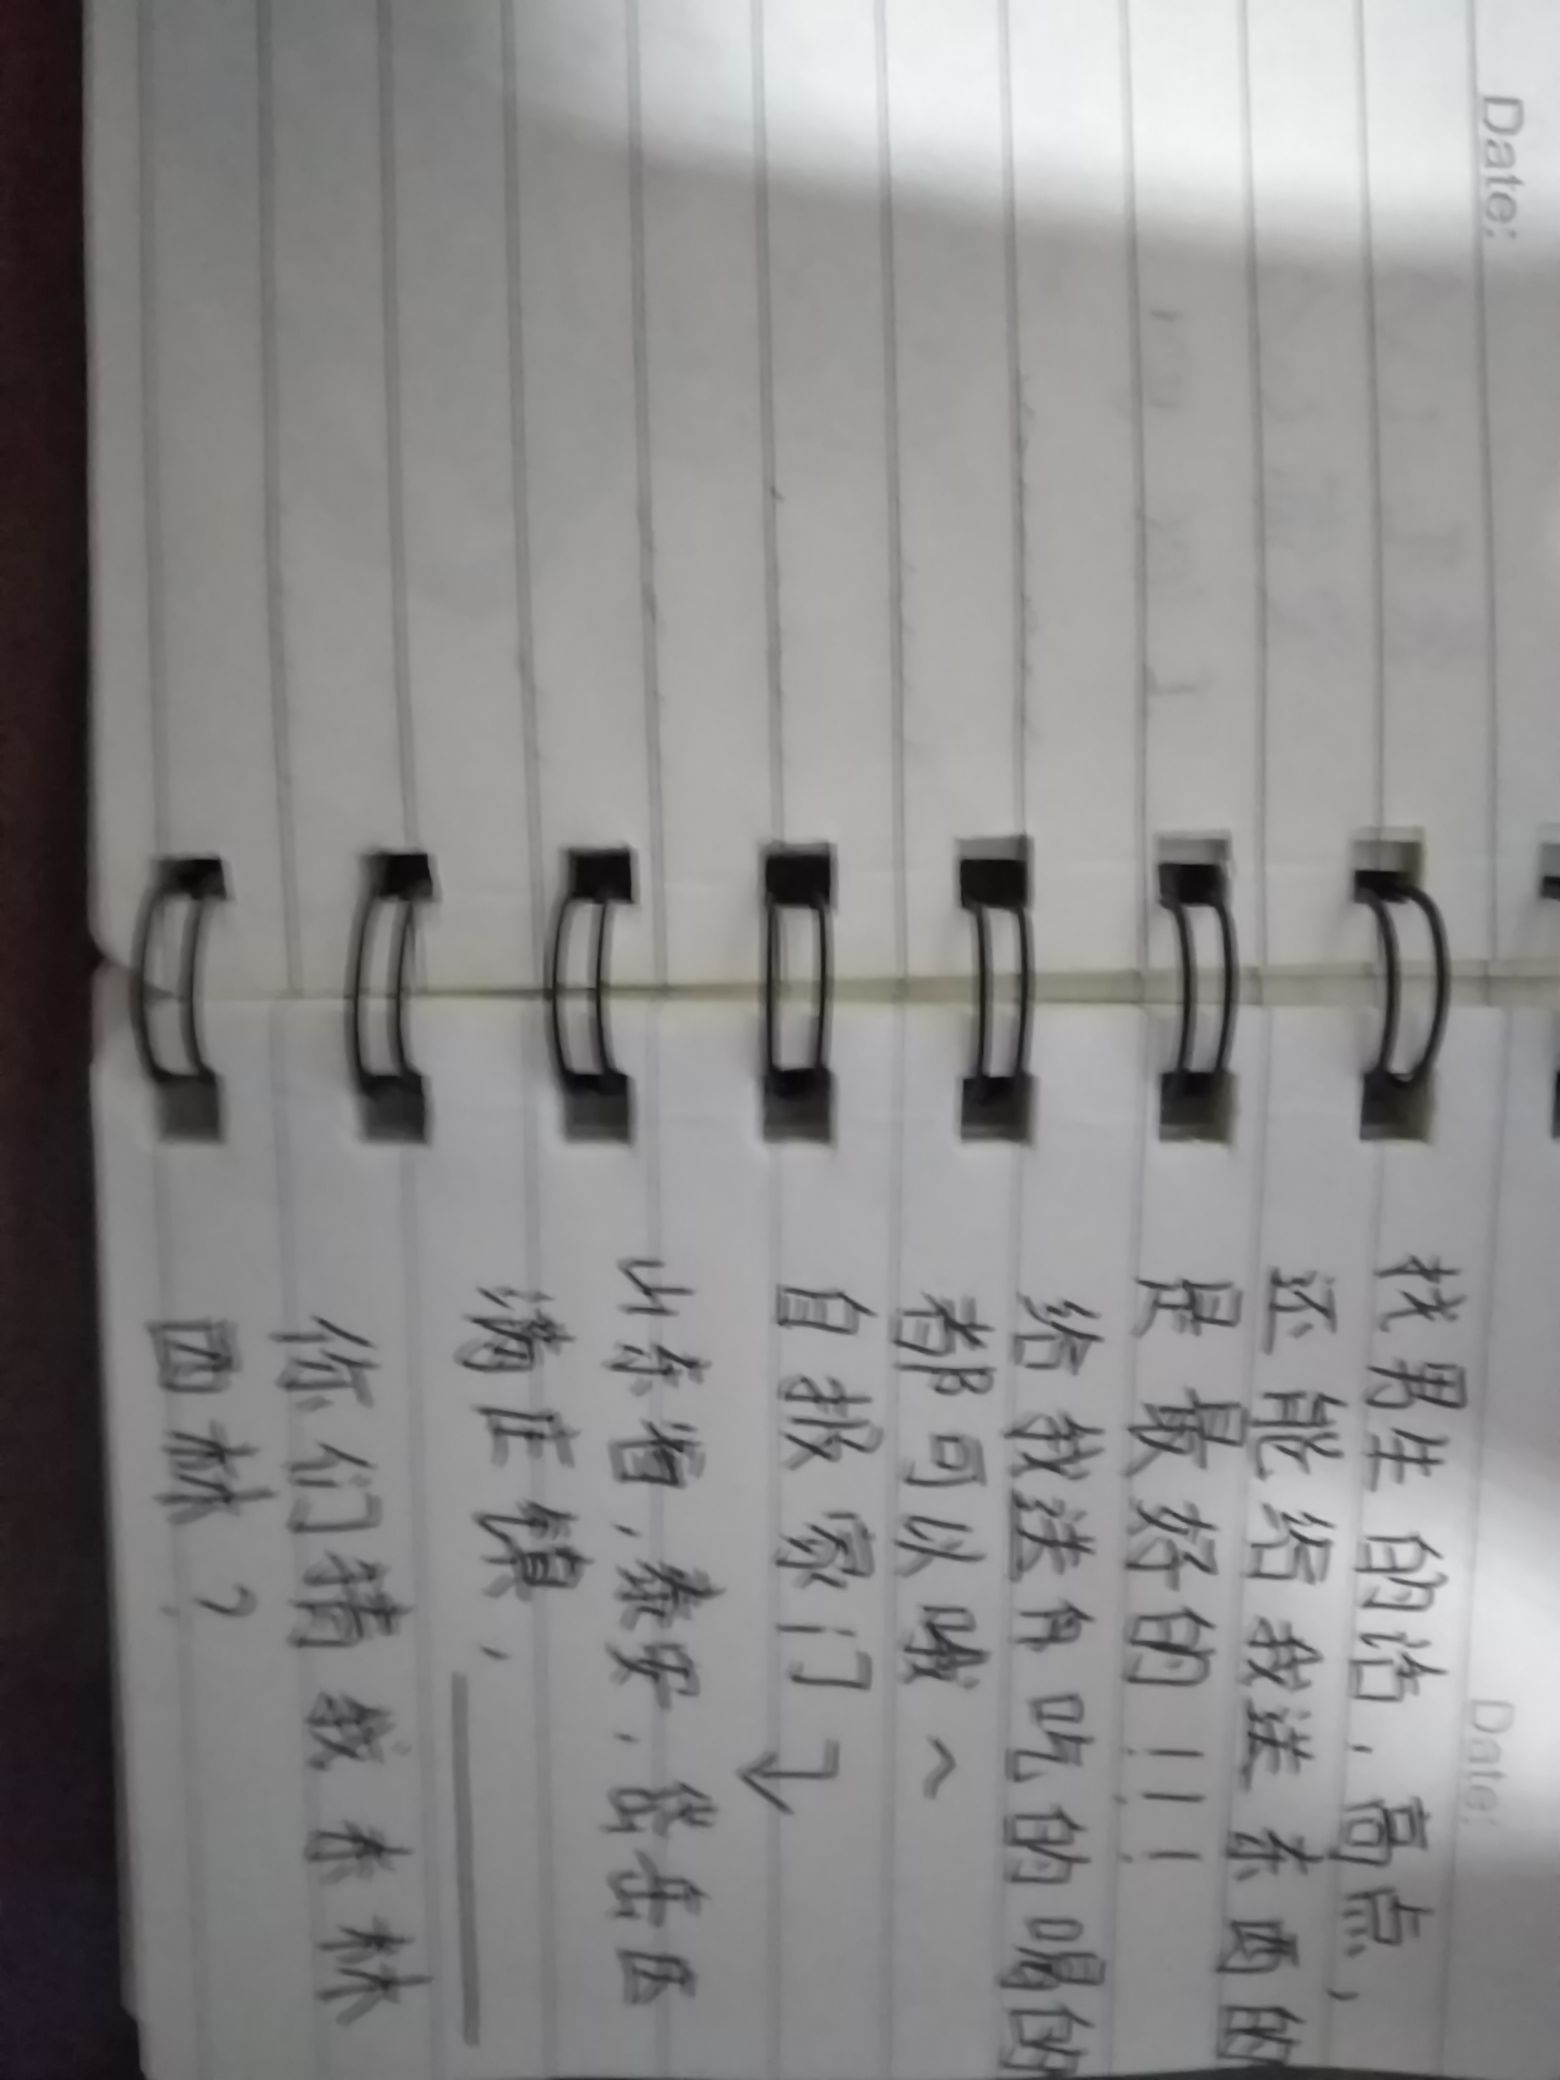 Date:
Date:
找男生的话，高点，
还能给我送东西的
是最好的！！！
给我送肉吃的喝的
都可以哦^
自报家门↓
山东省，泰安，岱岳区
满庄镇，
你们猜我东林
西林？